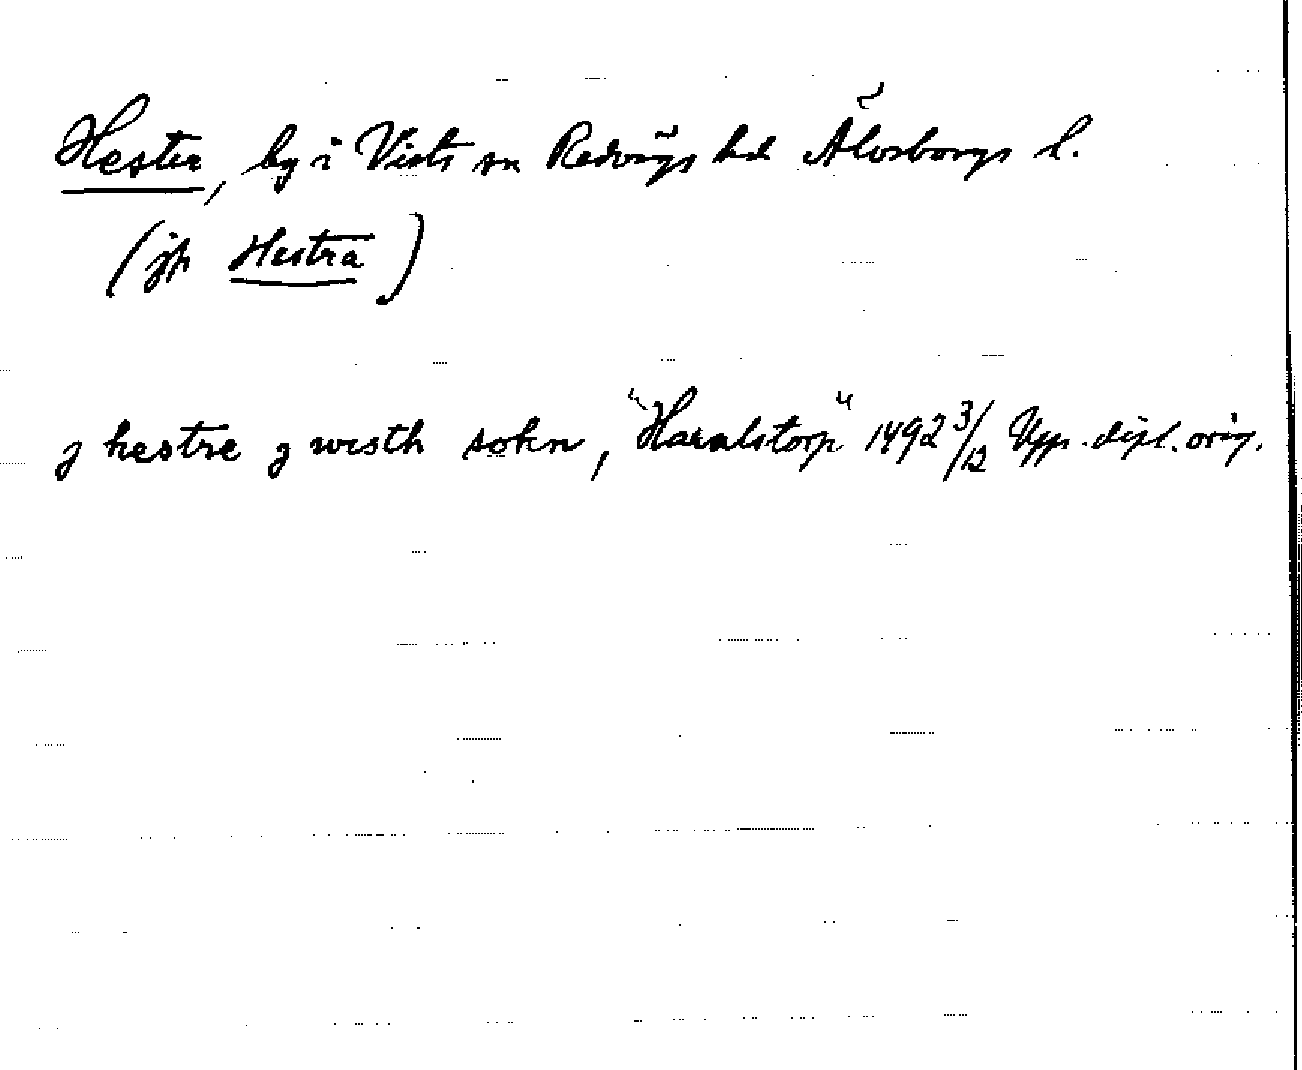 Hester, by i Vists sn Redvägs hd Älvsborgs l.
(jfr Hestra)
j hestre j westh sokn, "Haralstorp" 1492 3/12 Upps. dipl. orig.